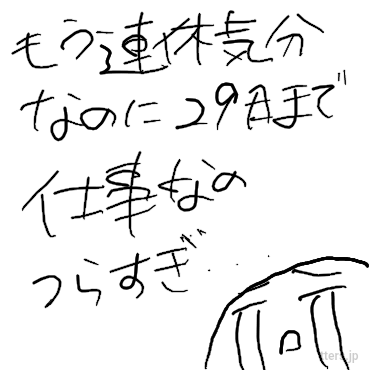 もう連休気分
なのに29日まで
仕事なの
つらすぎ...
tters.jp